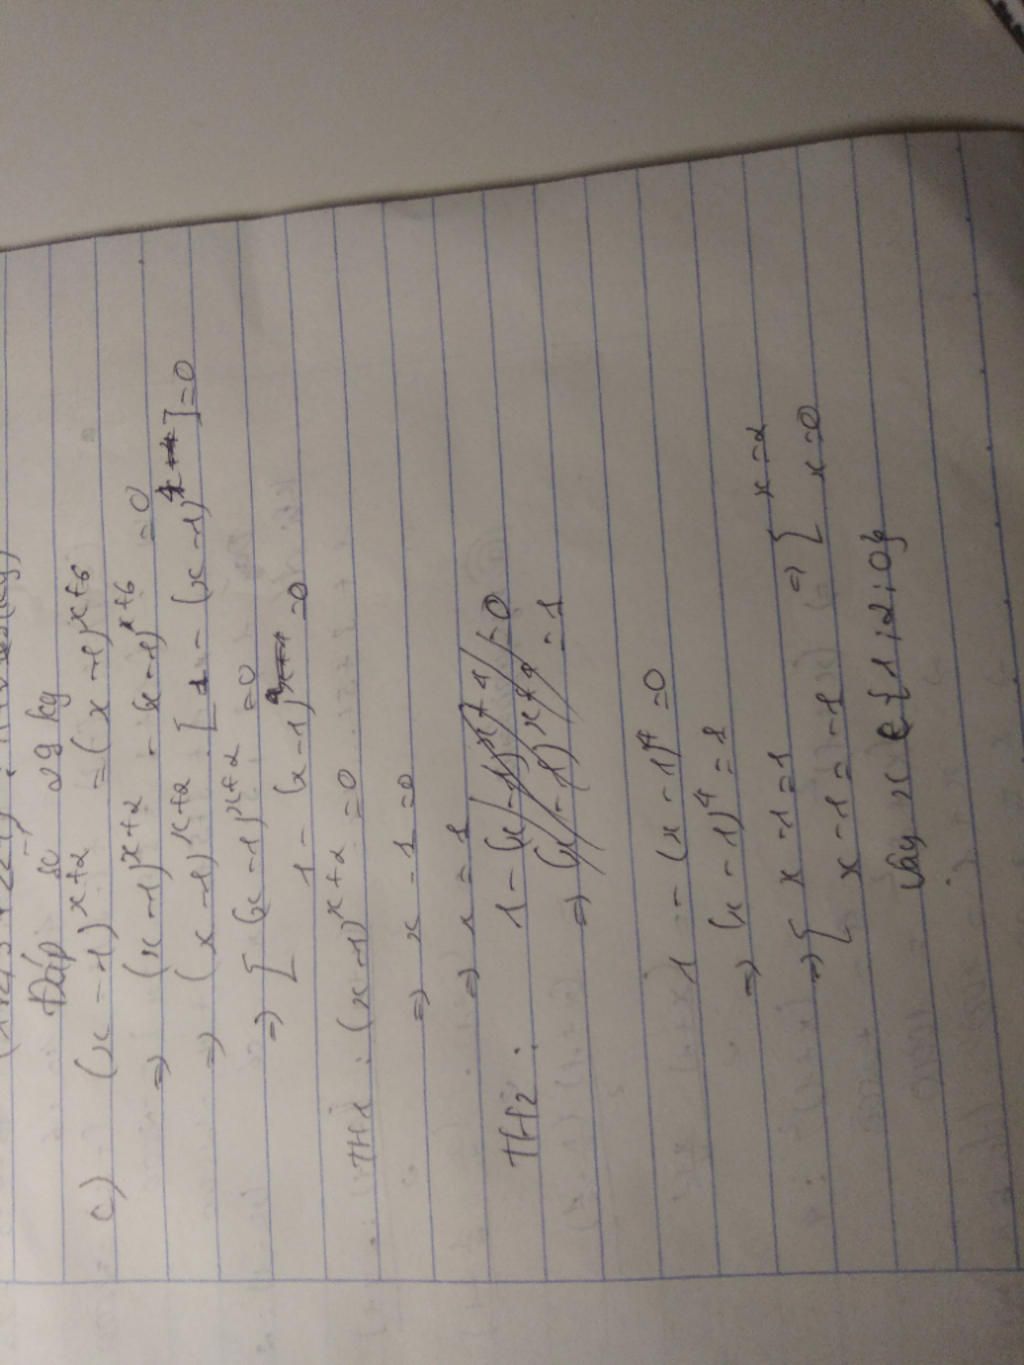 Đáp số 29 kg
c) (x-1)^{x+2} = (x-1)^{x+6}
=> (x-1)^{x+2} - (x-1)^{x+6} = 0
=> (x-1)^{x+2} . [1 - (x-1)^4] = 0
=> [ (x-1)^{x+2} = 0
1 - (x-1)^4 = 0
TH1 : (x-1)^{x+2} = 0
=> x - 1 = 0
=> x = 1
TH2 : 1 - (x-1)^{x+4} = 0
=> (x-1)^{x+4} = 1
1 - (x-1)^4 = 0
=> (x-1)^4 = 1
=> [ x-1 = 1 => [ x = 2
x-1 = -1 x = 0
Vậy x ∈ {1;2;0}